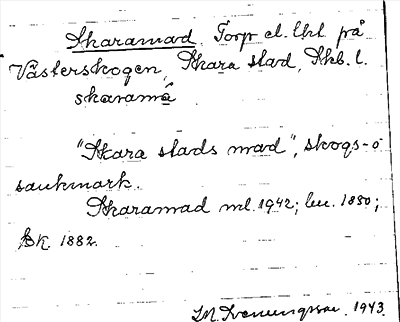 Skaramad. Torp el. lht. på
Västerskogen, Skara stad, Skb. l.
skaramå
"Skara stads mad", skogs- o
sankmark.
Skaramad ml. 1942; beu. 1880;
EK. 1882.
1943.